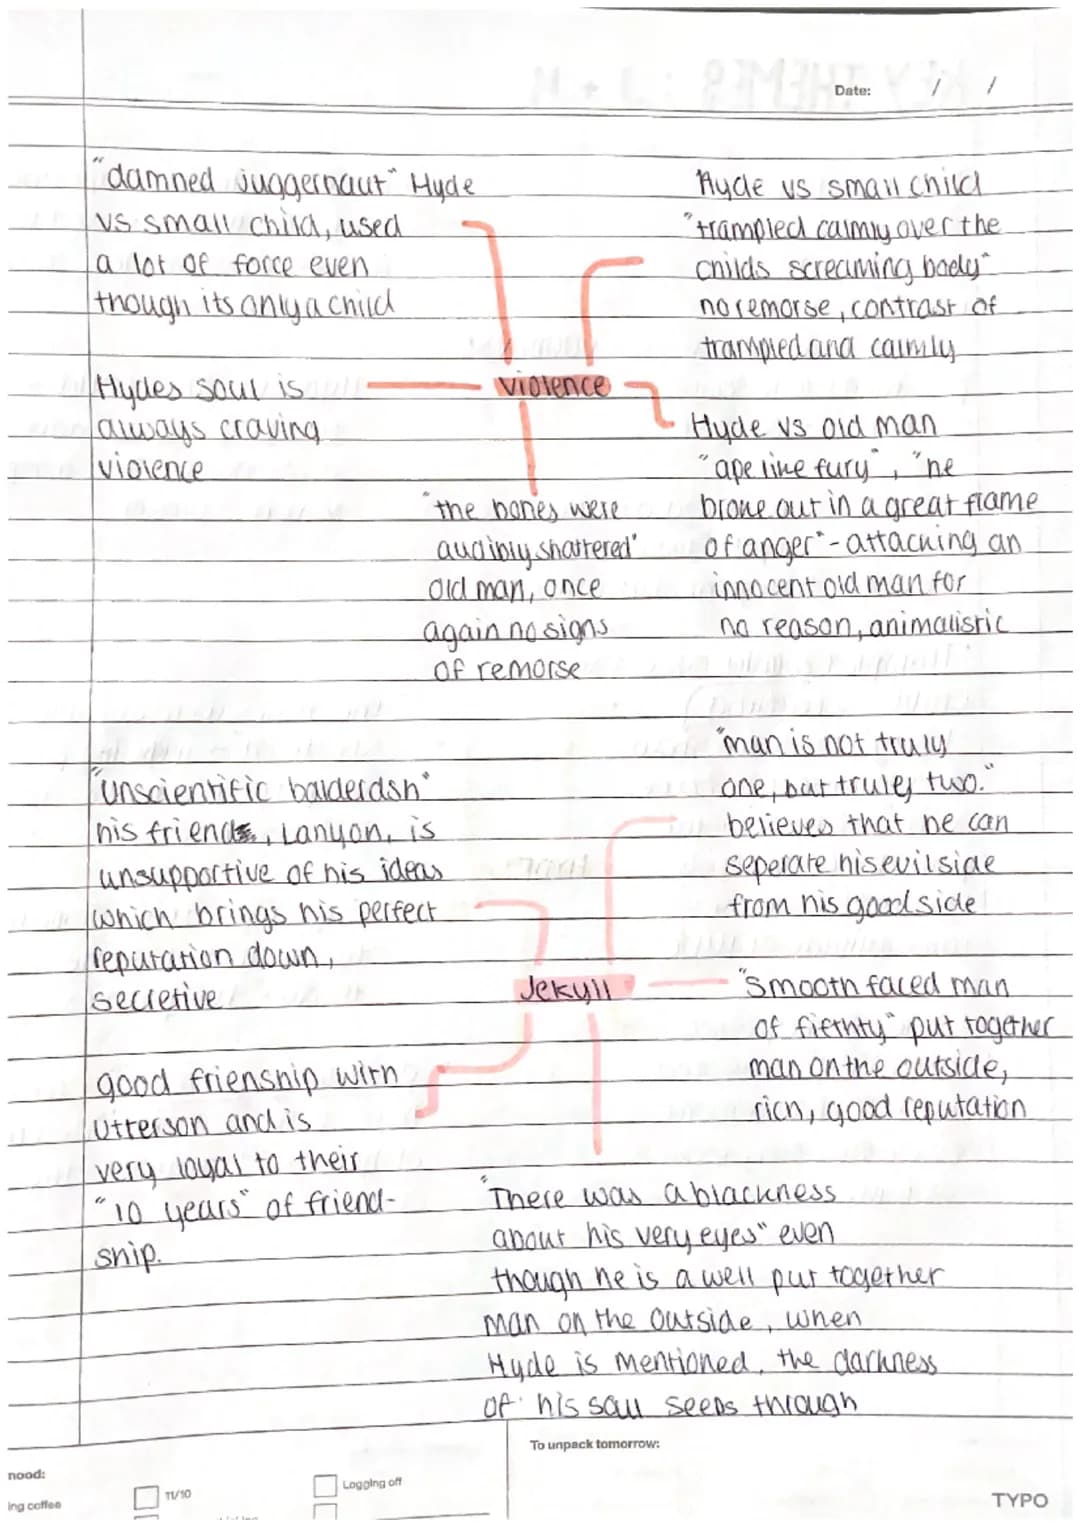 Date: / /
"damned juggernaut" Hyde
vs small child, used
a lot of force even
though its only a child
Hyde vs small child
"trampled calmly over the
childs screaming body"
no remorse, contrast of
trampled and calmly
Hydes soul is
always craving
violence
violence
Hyde vs old man
"ape like fury", "he
broke out in a great flame
of anger" - attacking an
innocent old man for
no reason, animalistic
"the bones were
audibly shattered"
old man, once
again no signs
of remorse
"man is not truly
one, but truley two."
believes that he can
seperate his evil side
from his good side
"unscientific balderdash"
his friend, Lanyon, is
unsupportive of his ideas
which brings his perfect
reputation down,
secretive
Jekyll
"Smooth faced man
of fiethty" put together
man on the outside,
rich, good reputation
good frienship with
Utterson and is
very loyal to their
"10 years" of friend-
ship.
"There was a blackness
about his very eyes" even
though he is a well put together
man on the outside, when
Hyde is mentioned, the darkness
of his soul seeps through
To unpack tomorrow:
nood:
ing coffee
11/10
Logging off
TYPO